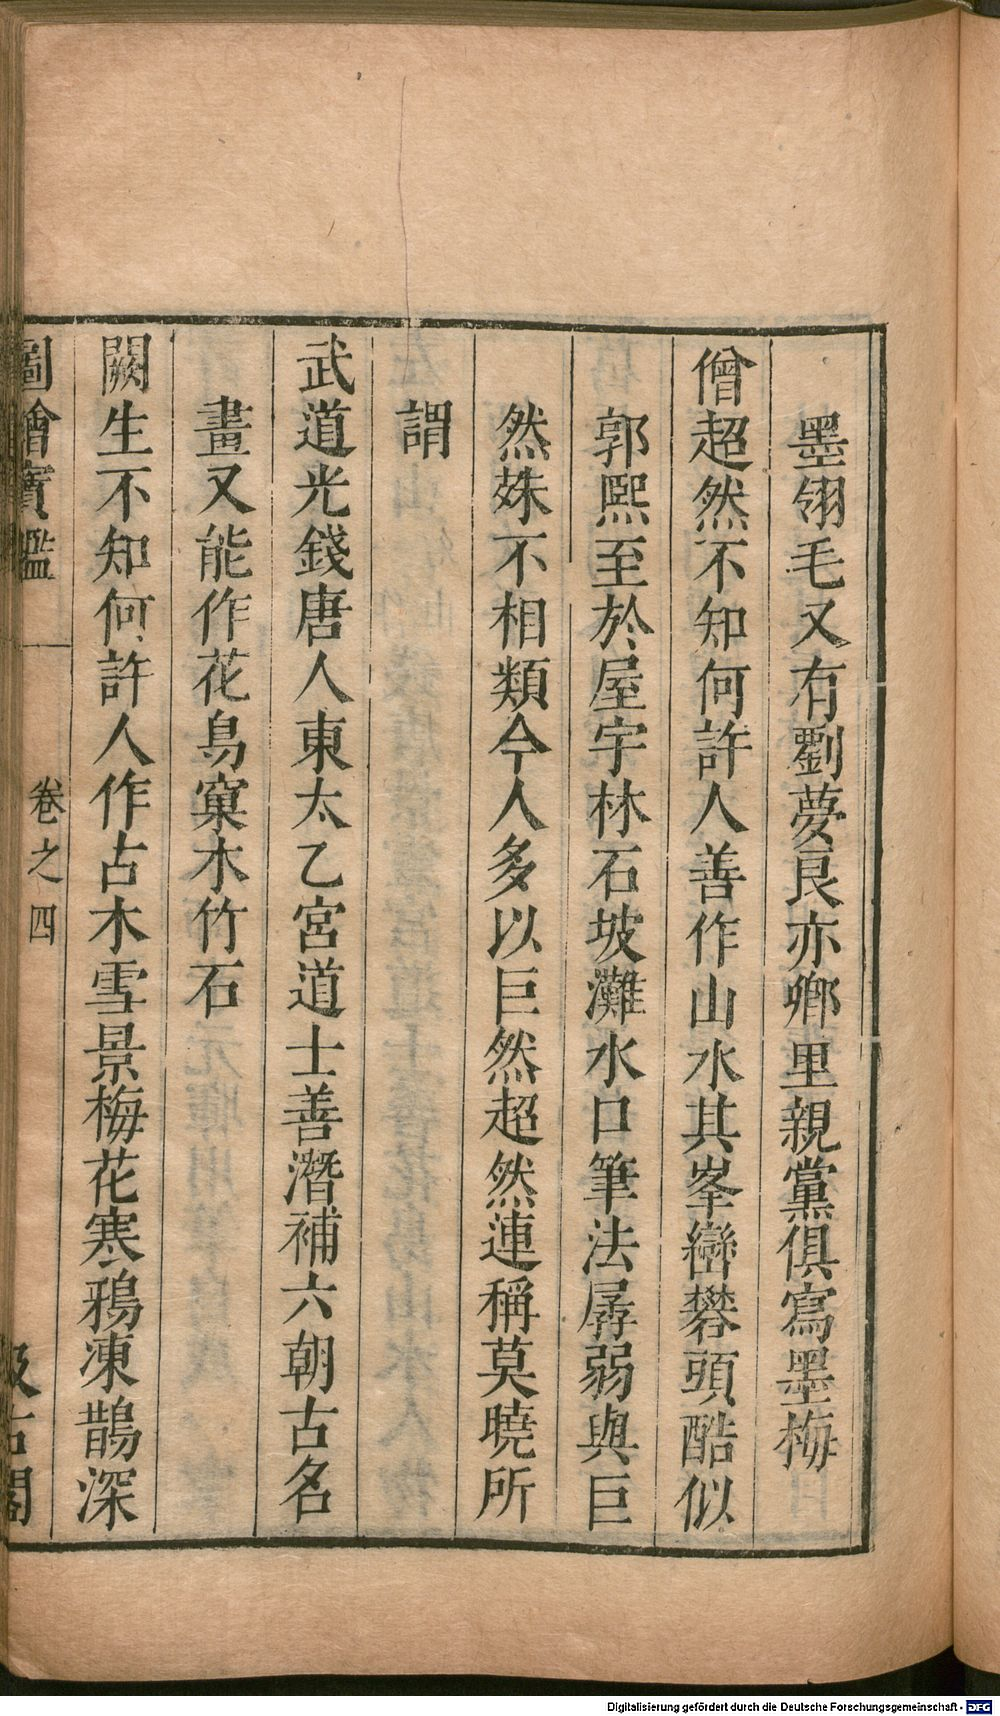 墨翎毛又有劉夢良亦鄉里親黨俱寫墨梅
僧超然不知何許人善作山水其峯巒礬頭酷似
郭熙至於屋宇林石坡灘水口筆法孱弱與巨
然殊不相類今人多以巨然超然連稱莫曉所
謂
武道光錢唐人東太乙宮道士善潛補六朝古名
畫又能作花鳥窠木竹石
闕生不知何許人作古木雪景梅花寒鴉凍鵲深
圖繪寶鑑 卷之四 汲古閣
Digitalisierung gefördert durch die Deutsche Forschungsgemeinschaft - DFG